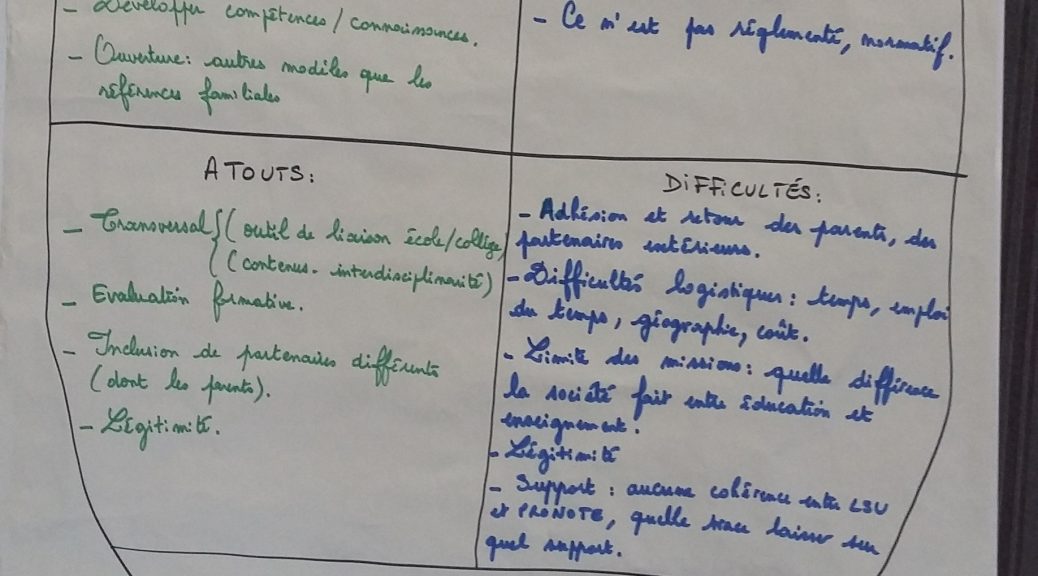 - Développer compétences/connaissances.
- Ouverture: autres modèles que les
références familiales
- Ce n'est pas réglementé, normatif.
ATOUTS:
- Transversal { (outil de liaison école/collège)
(contenus. interdisciplinarité)
- Evaluation formative.
- Inclusion de partenaires différents
(dont les parents).
- Légitimité.
DIFFICULTÉS:
- Adhésion et retour des parents, des
partenaires extérieurs.
- Difficultés logistiques: temps, emploi
du temps, géographie, coût.
- Limite des missions: quelle différence
la société fait entre éducation et
enseignement.
- Légitimité
- Support: aucune cohérence entre LSU
et PRONOTE, quelle trace laisser sur
quel support.